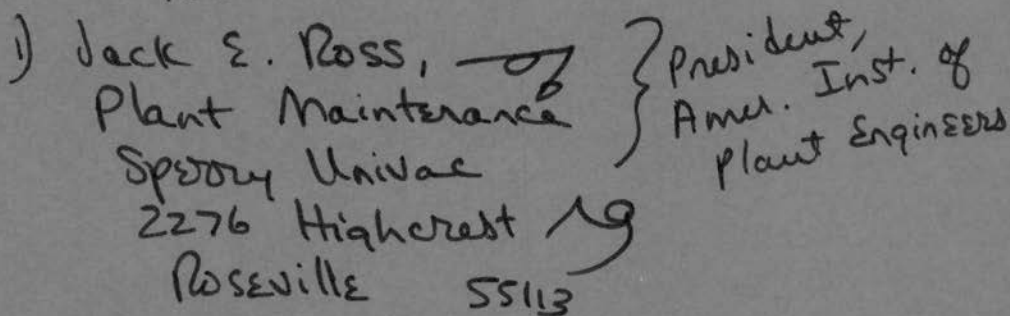 1) Jack E. Ross,
Plant Maintenance
Sperry Univac
2276 Highcrest
Roseville 55113
President,
Amer. Inst. of
Plant Engineers